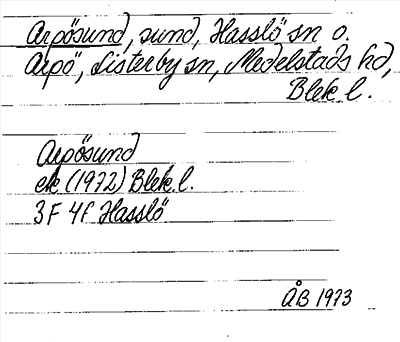 Arpösund, sund, Hasslö sn o.
Arpö, Listerby sn, Medelstads hd,
Blek l.
Arpösund
ek (1972) Blek l.
3F 4f Hasslö
ÅB 1973